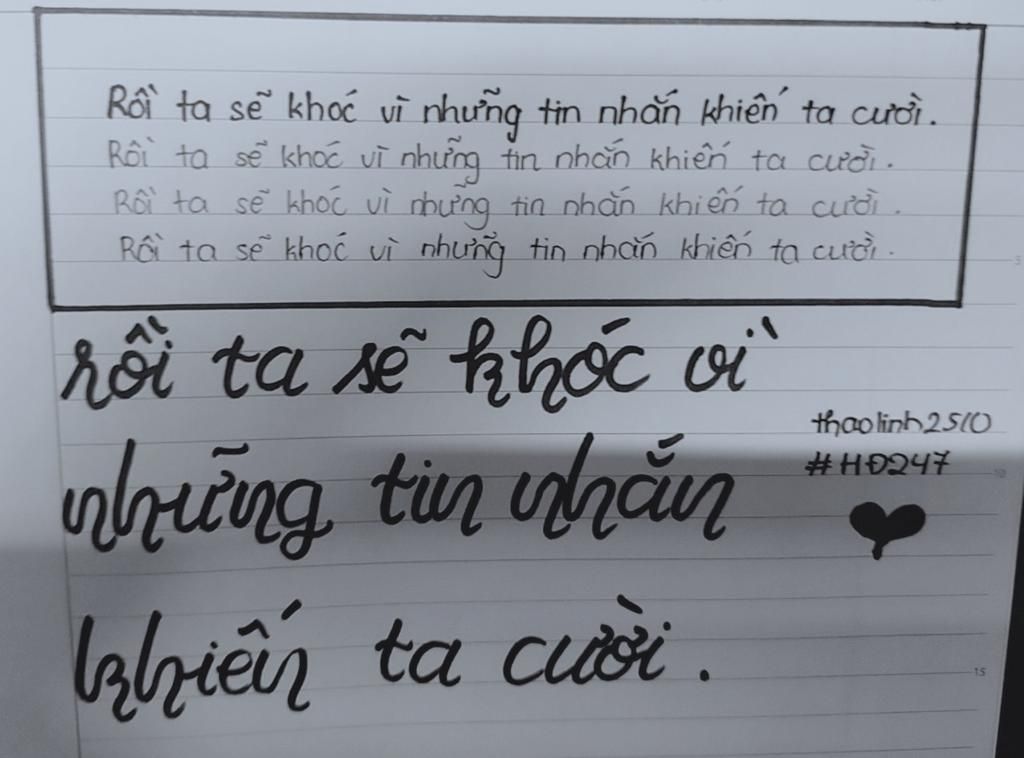 Rồi ta sẽ khóc vì những tin nhắn khiến ta cười.
Rồi ta sẽ khóc vì những tin nhắn khiến ta cười.
Rồi ta sẽ khóc vì những tin nhắn khiến ta cười.
Rồi ta sẽ khóc vì những tin nhắn khiến ta cười.
rồi ta sẽ khóc vì
những tin nhắn
khiến ta cười.
thaolinh2510
#HĐ247
5
10
15